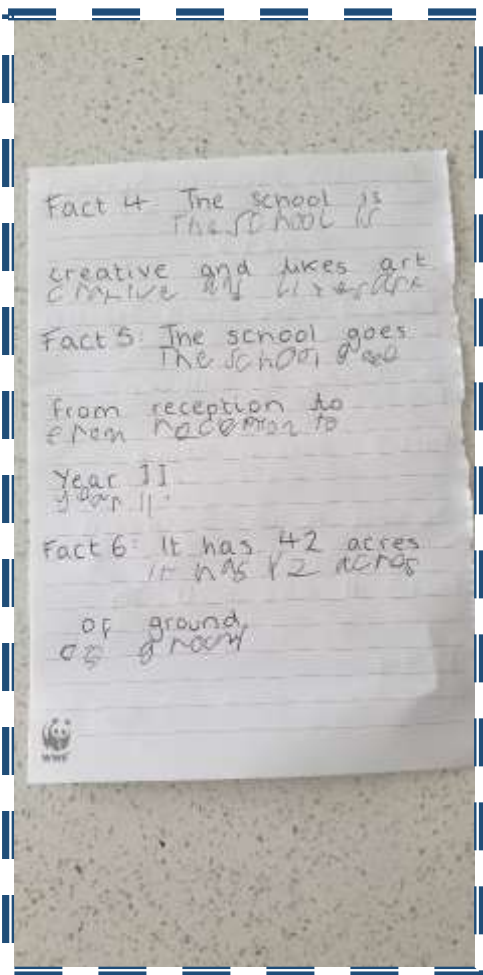 Fact 4 The school is
The school is
creative and likes art
creative and likes art
Fact 5: The school goes
The school goes
from reception to
from reception to
Year 11
year 11.
Fact 6: It has 42 acres
it has 42 acres
of ground
of ground
WWF